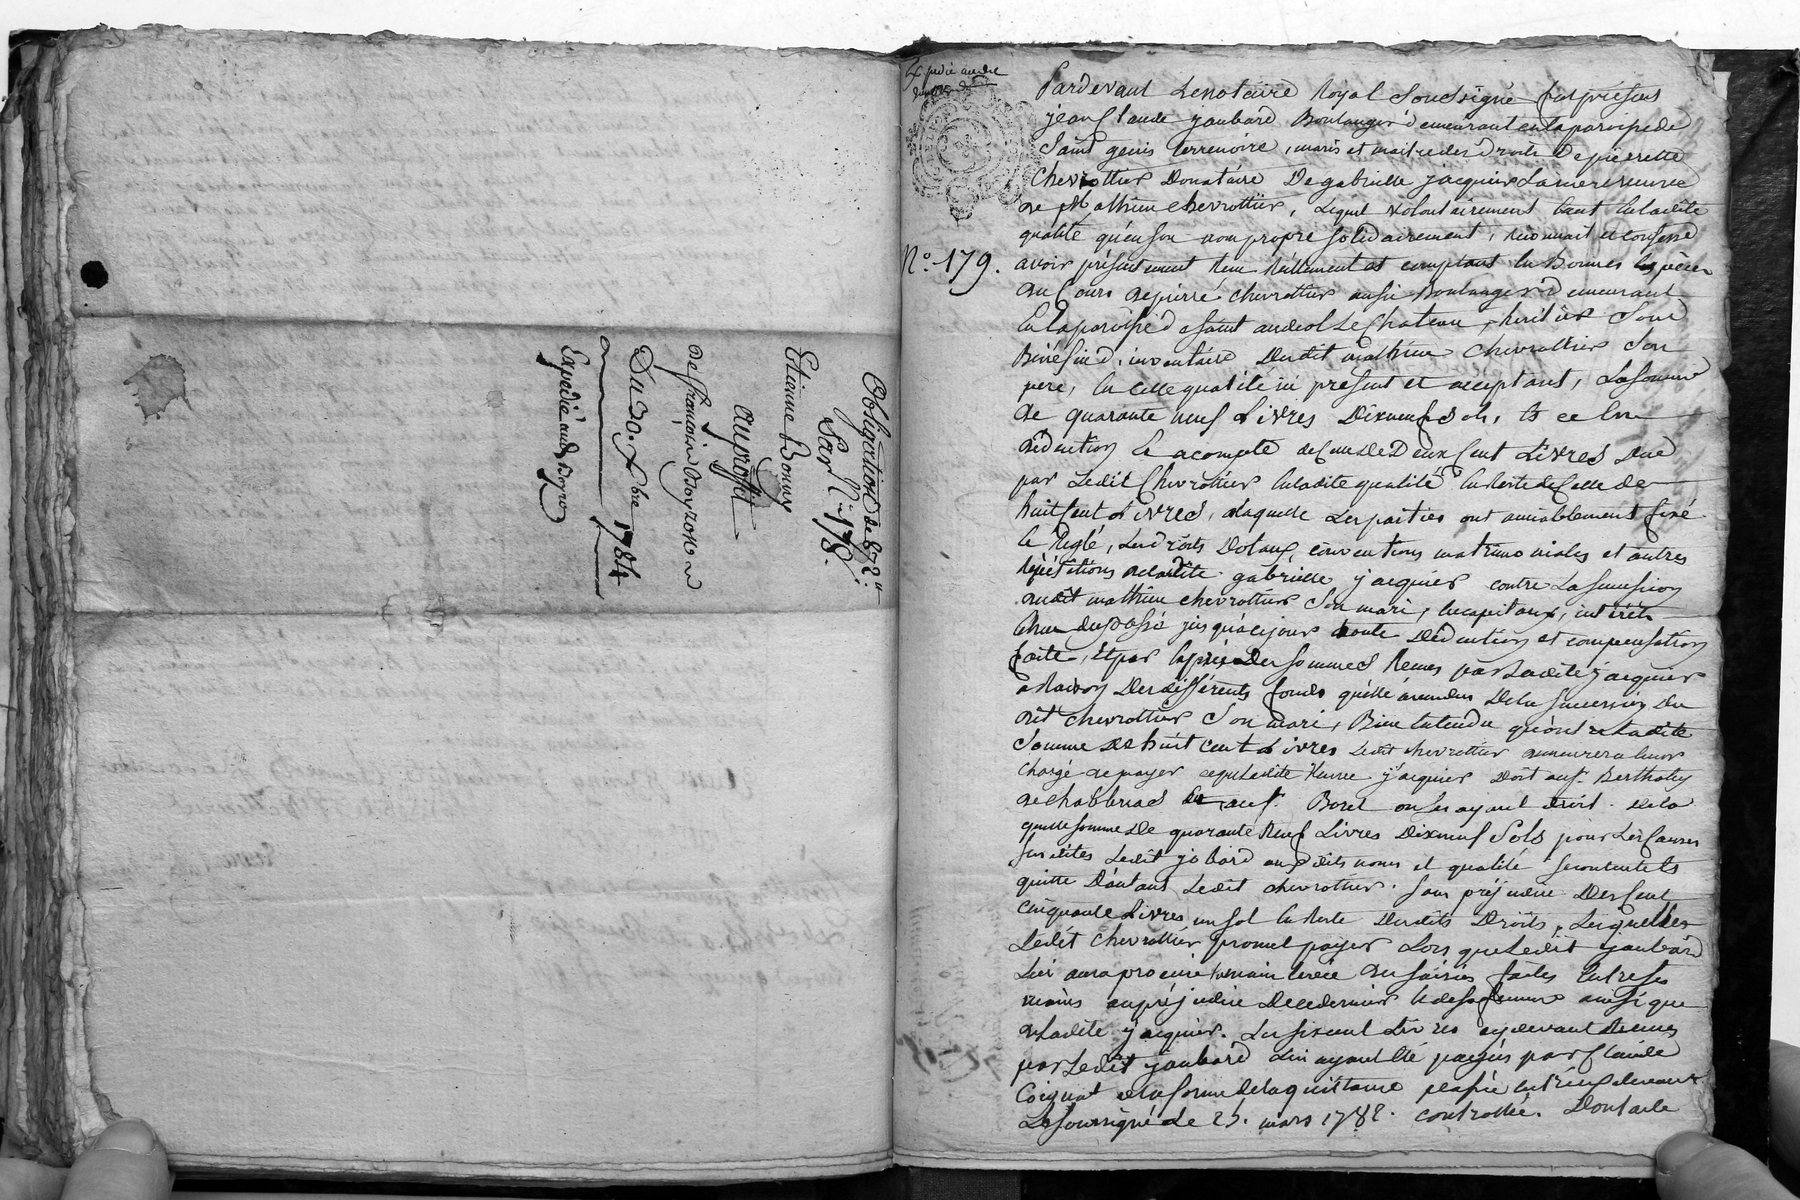 Obligation de 872."
Par N.° 178.
Etienne Bonny
au proffit
de françoise Boyron
Du 30. xbre 1784
Expédié aud. Boyron
Expedié audit
N.° 179.
Pardevant Le notaire Royal Soussigné fut présent
jean Claude jaubard Boulanger demeurant en la paroisse de
Saint genis terrenoire, maris et maitre des droits de pierrette
Chevrottier Donatáire De gabrielle jacquier La mere veuve
de Mathieu chevrottier, Lequel volontairement tant en ladite
qualité qu'en son nom propre solidairement, reconnait et confesse
avoir présentement Reçu Réellement et comptant En Bonnes Espèces
du Cours de pierre chevrottier aussi Boulanger demeurant
En la paroisse de saint andeol Le Chateau, héritier Sous
Bénéfice d'inventaire Dudit mathieu Chevrottier Son
pere, En cette qualité ici présent et acceptant, La somme
de quarante neuf Livres Dixneuf sols, Et ce En
déduction Et acompte de Celle De Deux Cent Livres Due
par Ledit Chevrottier En ladite qualité En Reste de Celle de
huit Cent Livres, a laquelle Les parties ont amiablement fixé
Et Reglé, Les droits Dotaux, conventions matrimoniales et autres
Répétitions de ladite gabrielle jacquier contre La succession
dudit mathieu chevrottier Son mari, En capitaux, intérêts
Echus du passé jusqu'à ce jour toute Déduction et compensation
faite, Et par Exprés Des sommes Reçues par Ladite jacquier
a Raison Des différents fonds qu'elle a vendus De la succession du
dit chevrottier Son mari, Bien Entendu qu'outre Ladite
Somme De huit cent Livres Ledit chevrottier demeurera Encor
chargé de payer ce que Ladite Veuve jacquier Doit au sr. Bertholley
de chabbenas Et au sr. Borel ou Les ayant droit. De la
quelle somme De quarante Neuf Livres Dixneuf Sols pour Les Causes
Sus dites Ledit jobard aux dits noms et qualité Se contente Et
quitte D'autant Ledit chevrottier. Sans préjudice Des Cent
Cinquante Livres un sol En Reste Desdits Droits, Lesquelles
Ledit chevrottier promet payer Lors que Ledit jaubard
Lui aura procuré Main levée des saisies faites Entre ses
mains au préjudice De ce dernier Et de sa femme ainsi que
de ladite jacquier. Les six cent Livres cy devant Reçues
par Ledit jaubard Lui ayant Eté payées par Claude
Coignat en la forme de la quittance passée Entr'eux devant
Le soussigné Le 25. mars 1782. controllée. Dont acte